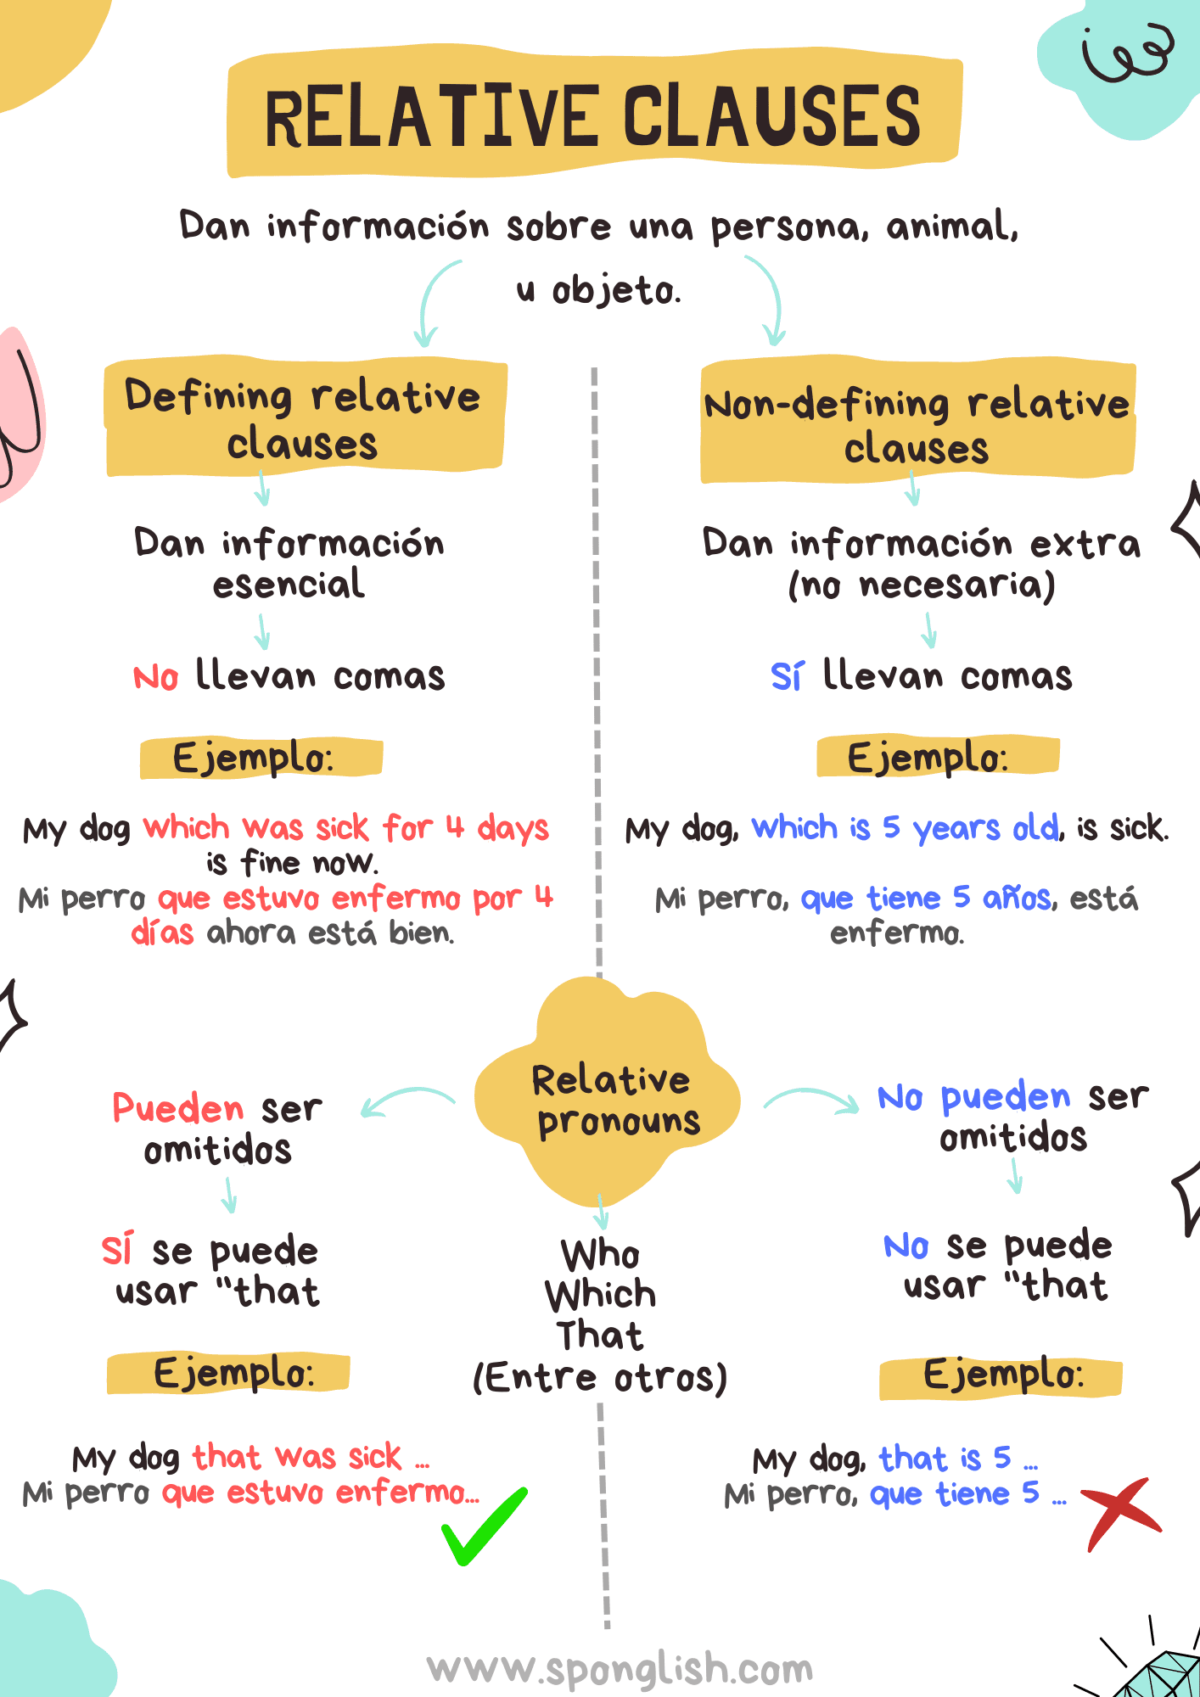 RELATIVE CLAUSES
Dan información sobre una persona, animal,
u objeto.
Defining relative
clauses
Dan información
esencial
No llevan comas
Ejemplo:
My dog which was sick for 4 days
is fine now.
Mi perro que estuvo enfermo por 4
días ahora está bien.
Non-defining relative
clauses
Dan información extra
(no necesaria)
Sí llevan comas
Ejemplo:
My dog, which is 5 years old, is sick.
Mi perro, que tiene 5 años, está
enfermo.
Relative
pronouns
Who
Which
That
(Entre otros)
Pueden ser
omitidos
Sí se puede
usar "that
Ejemplo:
My dog that was sick ...
Mi perro que estuvo enfermo...
No pueden ser
omitidos
No se puede
usar "that
Ejemplo:
My dog, that is 5 ...
Mi perro, que tiene 5 ...
www.sponglish.com